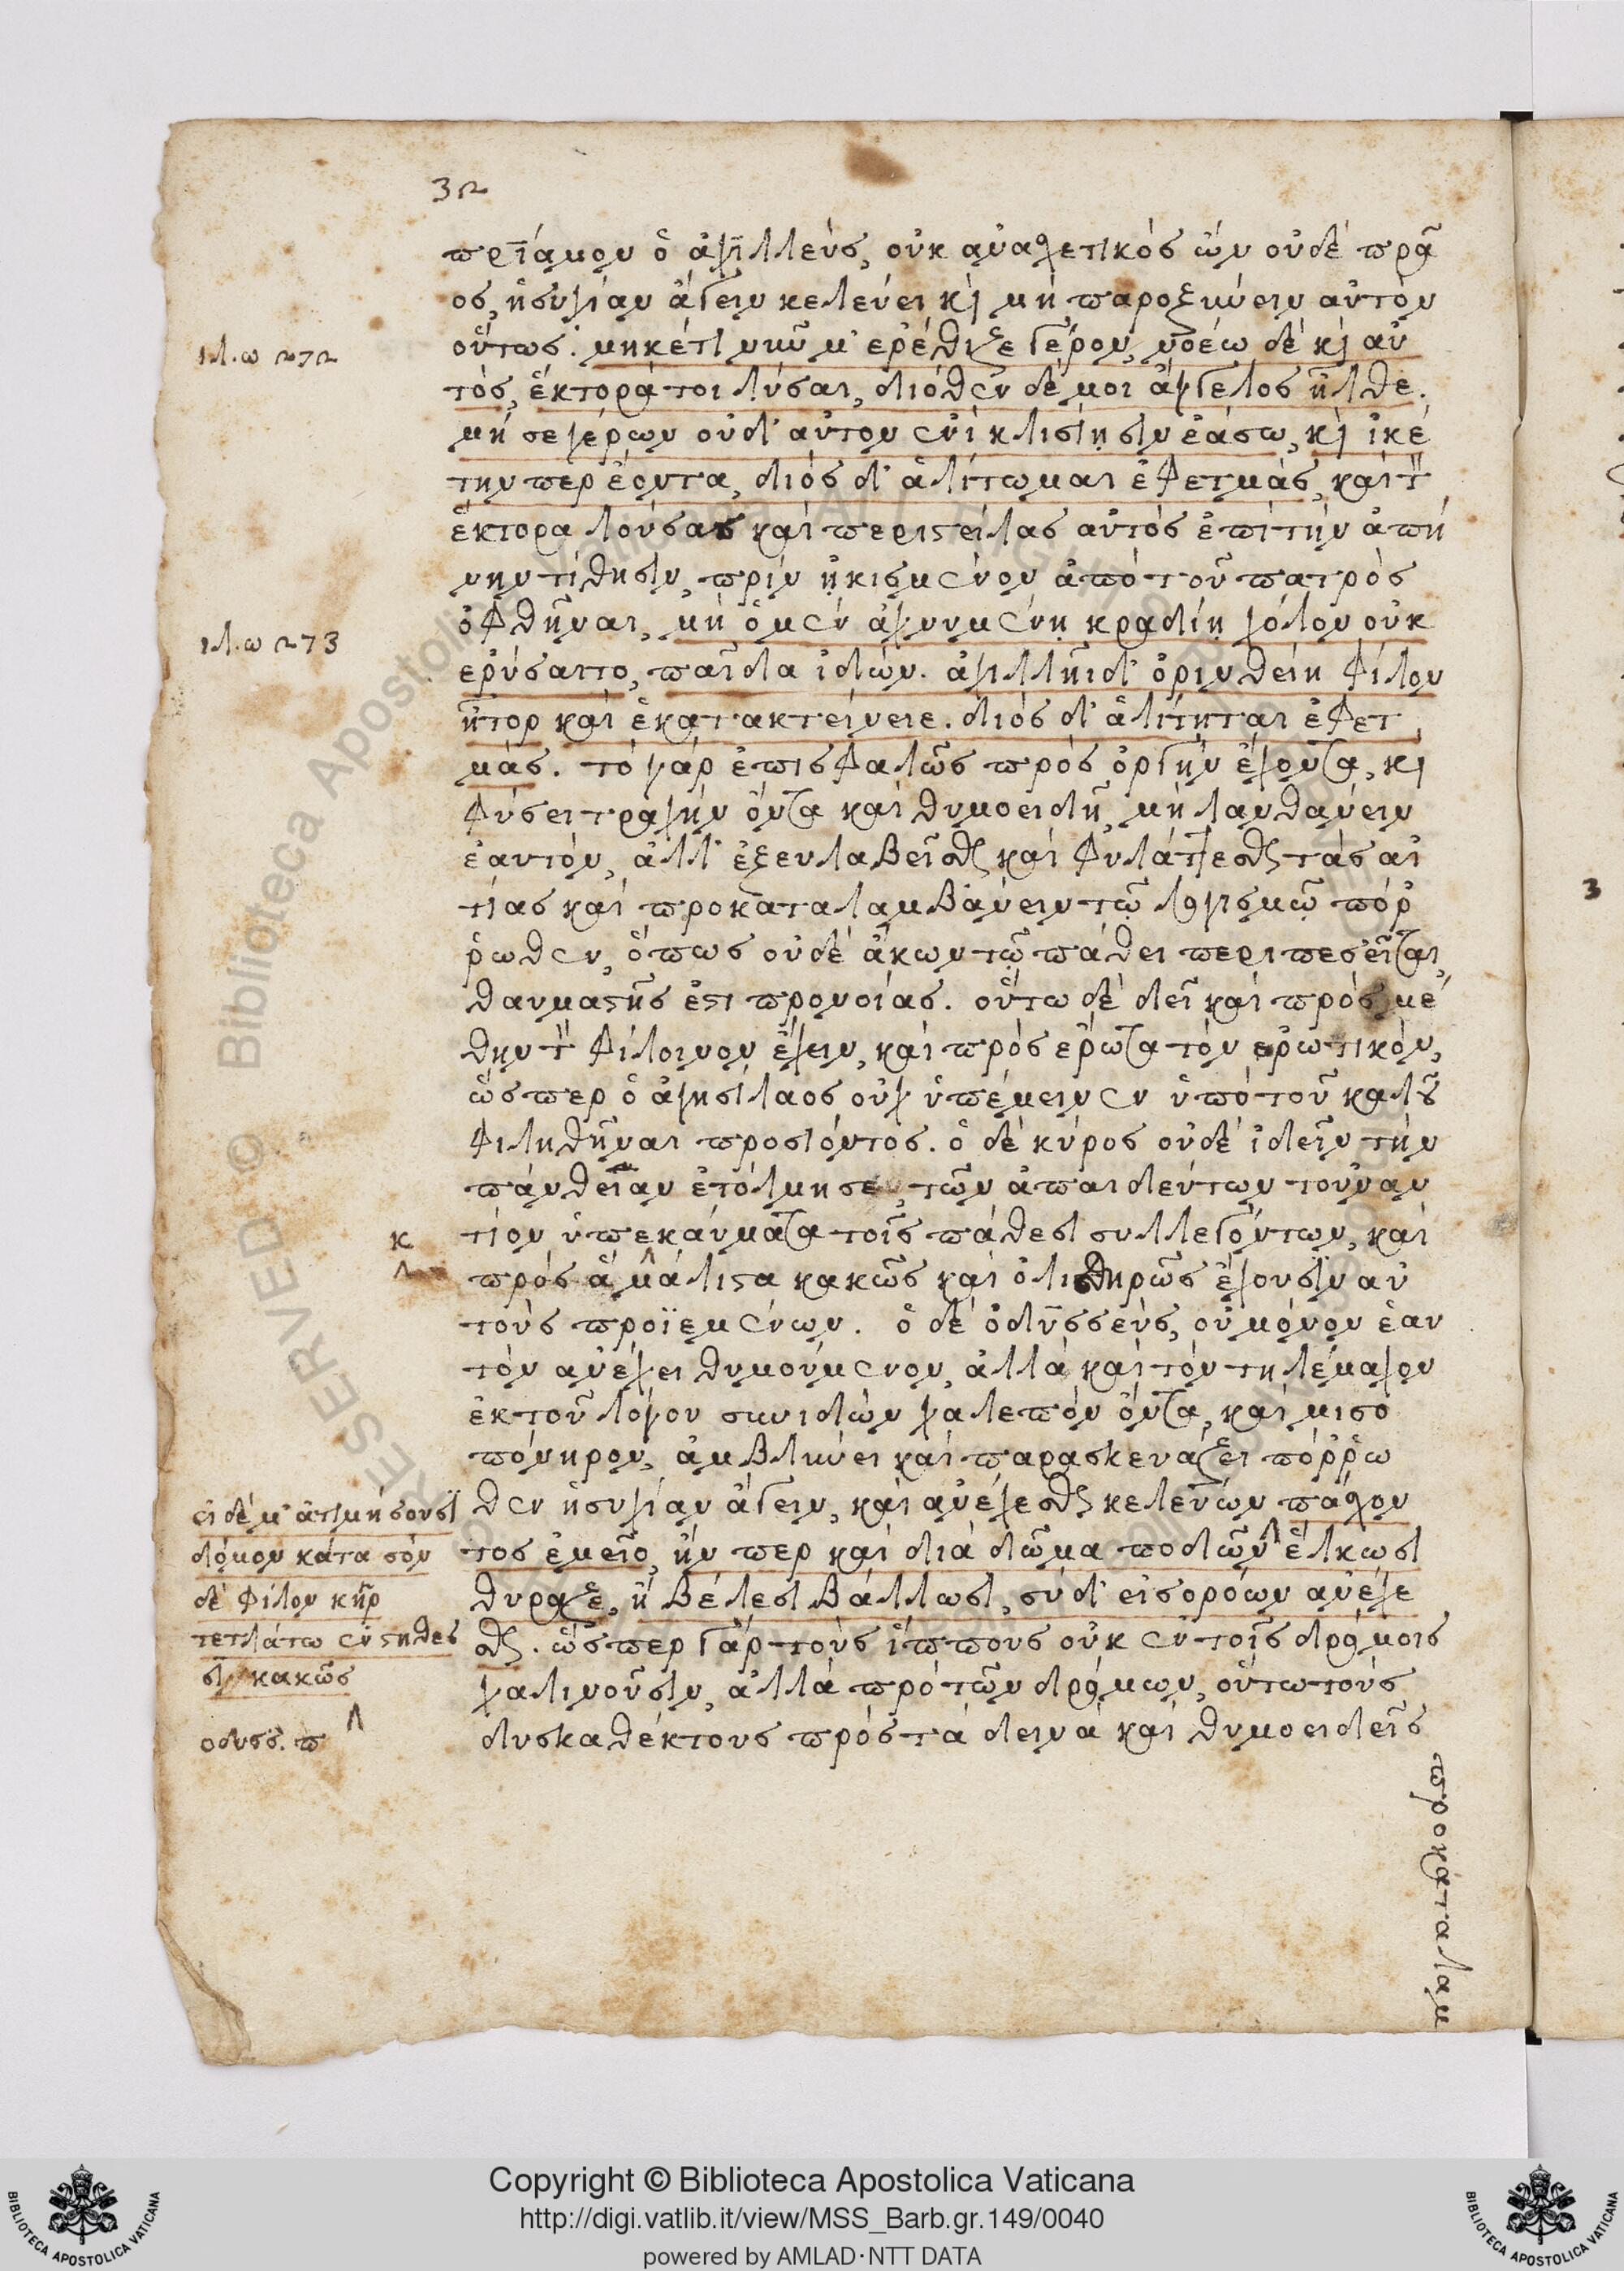 32
πριάμου ὁ ἀχιλλεύς, οὐκ ἀναλγετικός ὤν οὐδέ πρᾶ
ος, ἡσυχίαν ἄγειν κελεύει κὶ μή παροξύνειν αὐτόν
οὕτως. μηκέτι νῦν μ' ερέθιζε γέρον, νοέω δέ κὶ αὐ
ιλ. ω 272
τός, ἕκτορά τοι λύσαι, διόθεν δέ μοι ἄγγελος ἦλθε.
μή σε γέρων οὐδ' αὐτον ἐνὶ κλισίησιν ἐάσω, κὶ ἱκέ
την περ ἐόντα, διός δ' ἀλίτωμαι ἐφετμάς, καὶ τ
ἕκτορα λούσας καὶ περιστείλας αὐτός ἐπὶ τήν ἀπή
νην τίθησιν, πρίν ᾐκισμένον ἀπό τοῦ πατρός
ὀφθῆναι, μή ὁ μέν ἀχνυμένῃ κραδίῃ χόλον οὐκ
ιλ. ω 273
ερύσαιτο, παῖδα ἰδών. ἀχιλλῆι δ' ὀρινθείη φίλον
ἦτορ καὶ ἑ κατακτείνειε. διός δ' ἀλίτηται ἐφετ
μάς. τό γάρ ἐπισφαλῶς πρός ὀργήν ἔχοντα, κὶ
φύσει τραχήν ὄντα καὶ θυμοειδῆ, μή λανθάνειν
ἑαυτόν, ἀλλ' ἐξευλαβεῖσθαι καὶ φυλάττεσθαι τάς αἰ
τίας καὶ προκαταλαμβάνειν τῷ λογισμῷ πόρ
ρωθεν, ὅπως οὐδέ ἄκων τῷ πάθει περιπεσεῖται,
θαυμαστῆς ἐστι προνοίας. οὕτω δέ δεῖ καὶ πρός μέ
θην τ φίλοινον ἔχειν, καὶ πρός ἐρωτα τόν ερωτικόν,
ὥσπερ ὁ ἀγησίλαος οὐχ ὑπέμεινεν ὑπό τοῦ καλοῦ
φιληθῆναι προσιόντος. ὁ δέ κύρος οὐδέ ἰδεῖν τήν
πάνθειαν ἐτόλμησε, τῶν ἀπαιδεύτων τοὐναν
τίον ὑπεκαύματα τοῖς πάθεσι συλλεγόντων, καὶ
κ
λ
πρός ἅ μάλιστα κακῶς καὶ ὀλισθηρῶς ἔχουσιν αὑ
τούς προϊεμένων. ὁ δέ ὀδυσσεύς, οὐ μόνον ἑαυ
τόν ανέχει θυμούμενον, ἀλλά καὶ τόν τηλέμαχον
ἐκ τοῦ λόγου συνιδών χαλεπόν ὄντα, καὶ μισο
πόνηρον, ἀμβλύνει καὶ παρασκευάζει πόρρω
θεν ἡσυχίαν ἄγειν, καὶ ανέχεσθαι κελεύων πάσχον
τος ἐμεῖο, ἤν περ καὶ διά δῶμα ποδῶν ἕλκωσι
θυραζε, ἤ βέλεσι βάλλωσι, σύ δ' εἰσορόων ανέχε
σθαι. ὥσπερ γάρ τούς ἵππους οὐκ ἐν τοῖς δρόμοις
χαλινοῦσιν, ἀλλά πρό τῶν δρόμων, οὕτω τούς
δυσκαθέκτους πρός τά δεινά καὶ θυμοειδεῖς
εἰ δέ μ' ἀτιμήσουσι
δόμον κάτα σόν
δέ φίλον κῆρ
τετλάτω ἐν στήθεσ
σιν κακῶς
οδυσσ. π
προκαταλαμ
3
Copyright © Biblioteca Apostolica Vaticana
http://digi.vatlib.it/view/MSS_Barb.gr.149/0040
powered by AMLAD·NTT DATA